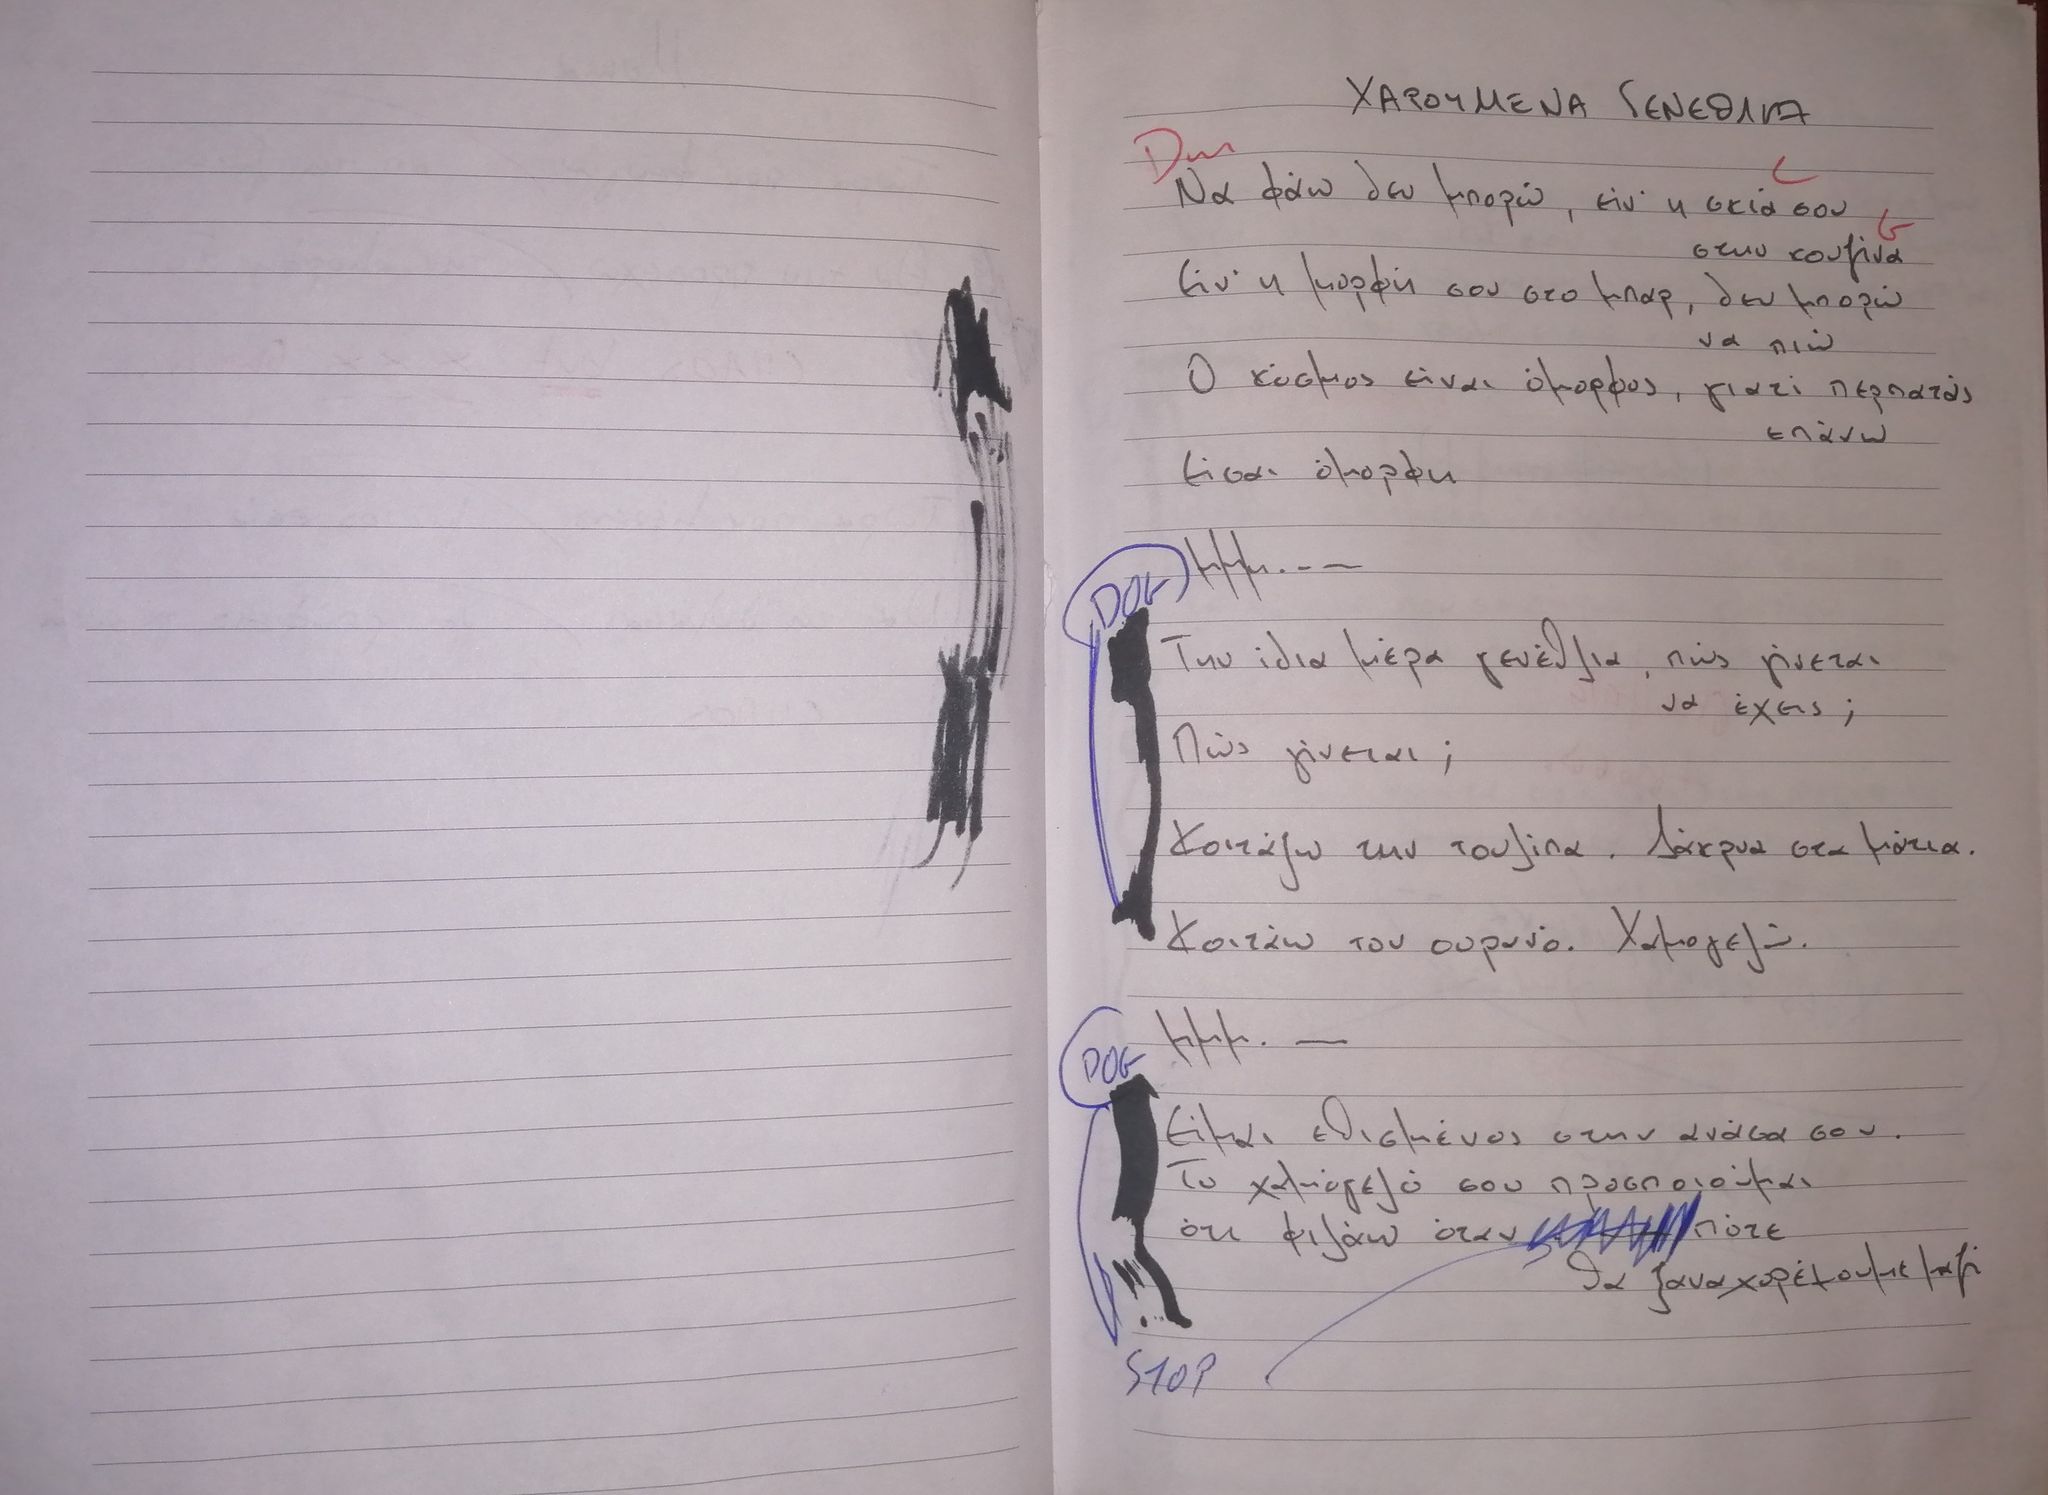 ΧΑΡΟΥΜΕΝΑ ΓΕΝΕΘΛΙΑ
Dm C
Να φάω δεν μπορώ, είν' η σκιά σου
G
στην κουζίνα
Είν' η μορφή σου στο μπαρ, δεν μπορώ
να πιώ
Ο κόσμος είναι όμορφος, γιατί περπατάς
επάνω
Είσαι όμορφη
μμμ.--—
DOG
Την ίδια μέρα γενέθλια, πώς γίνεται
να έχεις;
Πώς γίνεται;
Κοιτάζω την τουλίπα. Δάκρυα στα μάτια.
Κοιτάω τον ουρανό. Χαμογελώ.
μμμ. —
DOG
Είμαι εθισμένος στην ανάσα σου.
Το χαμόγελό σου προσποιούμαι
ότι φιλάω όταν πότε
θα ξαναχορέψουμε μαζί
STOP